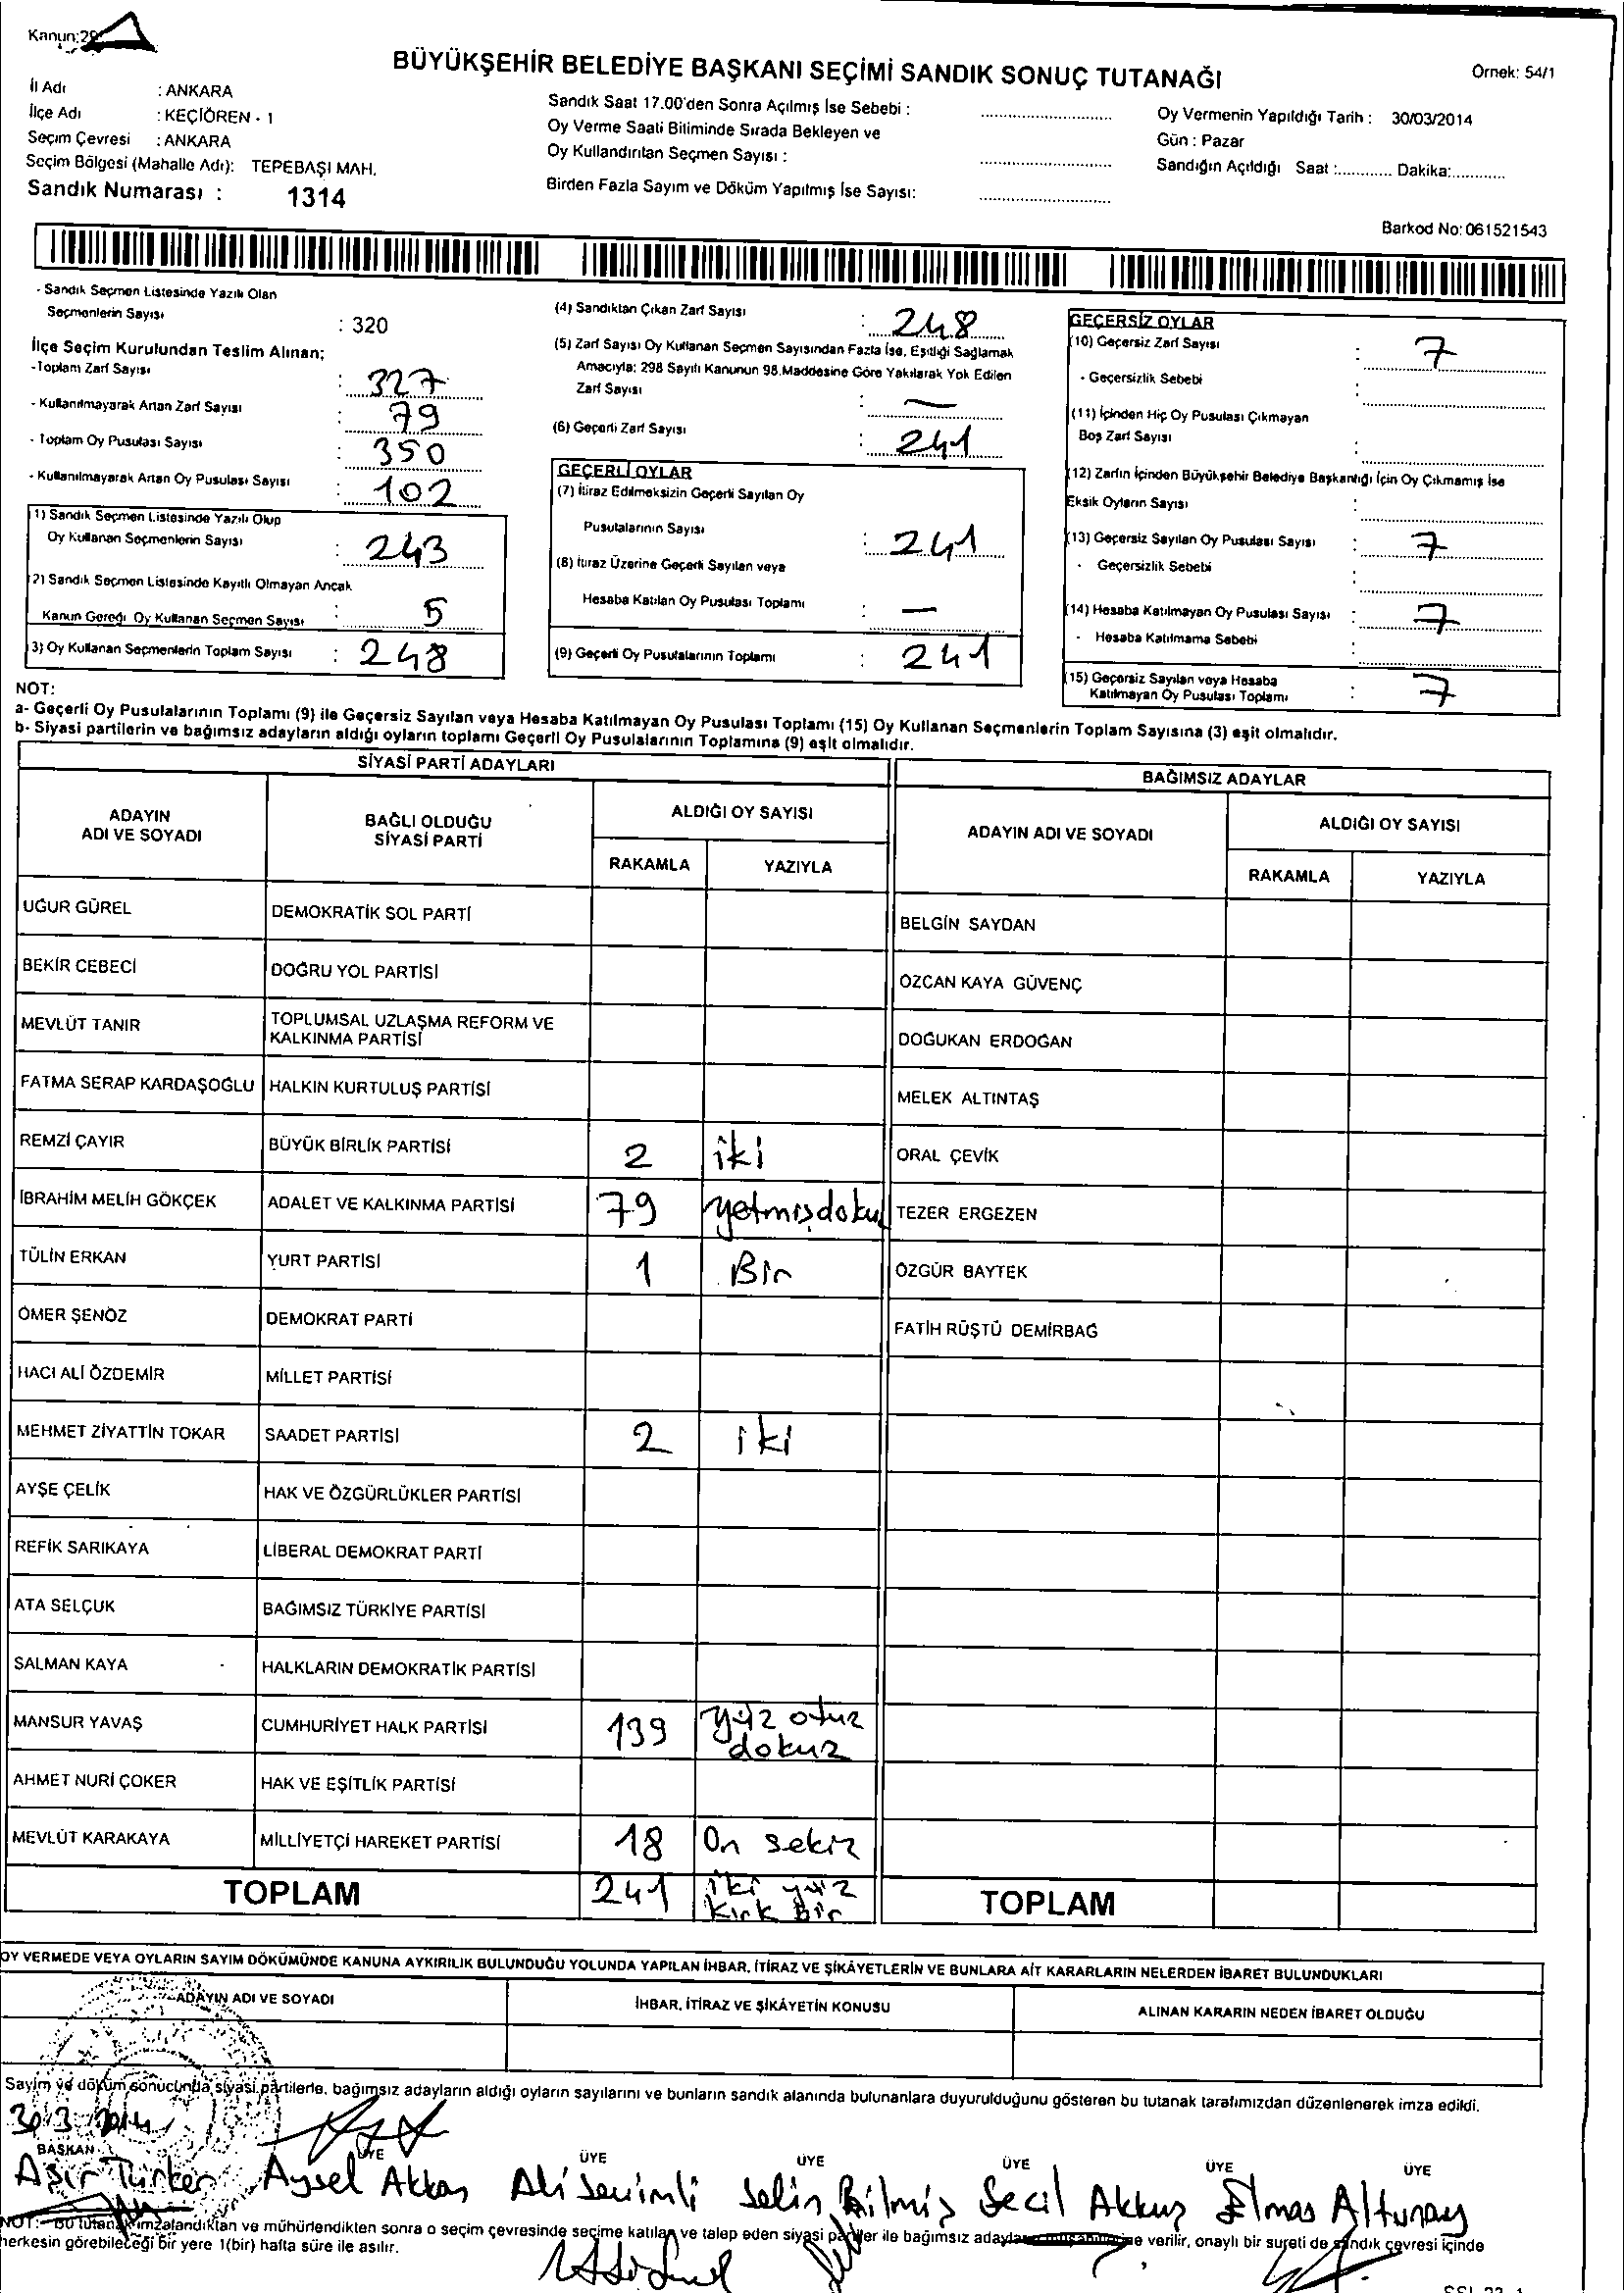 Kanun:29
BÜYÜKŞEHİR BELEDİYE BAŞKANI SEÇİMİ SANDIK SONUÇ TUTANAĞI
Örnek: 54/1
İl Adı : ANKARA
İlçe Adı : KEÇİÖREN - 1
Seçim Çevresi : ANKARA
Seçim Bölgesi (Mahalle Adı): TEPEBAŞI MAH.
Sandık Numarası : 1314
Sandık Saat 17.00'den Sonra Açılmış İse Sebebi :
Oy Verme Saati Bitiminde Sırada Bekleyen ve
Oy Kullandırılan Seçmen Sayısı :
Birden Fazla Sayım ve Döküm Yapılmış İse Sayısı:
Oy Vermenin Yapıldığı Tarih : 30/03/2014
Gün : Pazar
Sandığın Açıldığı Saat :............ Dakika:...........
Barkod No: 061521543
- Sandık Seçmen Listesinde Yazılı Olan
Seçmenlerin Sayısı : 320
İlçe Seçim Kurulundan Teslim Alınan;
-Toplam Zarf Sayısı : 327
- Kullanılmayarak Artan Zarf Sayısı : 79
- Toplam Oy Pusulası Sayısı : 350
- Kullanılmayarak Artan Oy Pusulası Sayısı : 102
1) Sandık Seçmen Listesinde Yazılı Olup
Oy Kullanan Seçmenlerin Sayısı : 243
2) Sandık Seçmen Listesinde Kayıtlı Olmayan Ancak
Kanun Gereği Oy Kullanan Seçmen Sayısı : 5
3) Oy Kullanan Seçmenlerin Toplam Sayısı : 248
(4) Sandıktan Çıkan Zarf Sayısı : 248
(5) Zarf Sayısı Oy Kullanan Seçmen Sayısından Fazla İse, Eşitliği Sağlamak
Amacıyla; 298 Sayılı Kanunun 98.Maddesine Göre Yakılarak Yok Edilen
Zarf Sayısı : —
(6) Geçerli Zarf Sayısı : 241
GEÇERLİ OYLAR
(7) İtiraz Edilmeksizin Geçerli Sayılan Oy
Pusulalarının Sayısı : 241
(8) İtiraz Üzerine Geçerli Sayılan veya
Hesaba Katılan Oy Pusulası Toplamı : —
(9) Geçerli Oy Pusulalarının Toplamı : 241
GEÇERSİZ OYLAR
(10) Geçersiz Zarf Sayısı : 7
- Geçersizlik Sebebi :
(11) İçinden Hiç Oy Pusulası Çıkmayan
Boş Zarf Sayısı :
(12) Zarfın İçinden Büyükşehir Belediye Başkanlığı İçin Oy Çıkmamış İse
Eksik Oyların Sayısı :
(13) Geçersiz Sayılan Oy Pusulası Sayısı : 7
- Geçersizlik Sebebi :
(14) Hesaba Katılmayan Oy Pusulası Sayısı : 7
- Hesaba Katılmama Sebebi :
15) Geçersiz Sayılan veya Hesaba
Katılmayan Oy Pusulası Toplamı : 7
NOT:
a- Geçerli Oy Pusulalarının Toplamı (9) ile Geçersiz Sayılan veya Hesaba Katılmayan Oy Pusulası Toplamı (15) Oy Kullanan Seçmenlerin Toplam Sayısına (3) eşit olmalıdır.
b- Siyasi partilerin ve bağımsız adayların aldığı oyların toplamı Geçerli Oy Pusulalarının Toplamına (9) eşit olmalıdır.
SİYASİ PARTİ ADAYLARI
ADAYIN ADI VE SOYADI
BAĞLI OLDUĞU SİYASİ PARTİ
ALDIĞI OY SAYISI
RAKAMLA YAZIYLA
UĞUR GÜREL DEMOKRATİK SOL PARTİ
BEKİR CEBECİ DOĞRU YOL PARTİSİ
MEVLÜT TANIR TOPLUMSAL UZLAŞMA REFORM VE KALKINMA PARTİSİ
FATMA SERAP KARDAŞOĞLU HALKIN KURTULUŞ PARTİSİ
REMZİ ÇAYIR BÜYÜK BİRLİK PARTİSİ 2 iki
İBRAHİM MELİH GÖKÇEK ADALET VE KALKINMA PARTİSİ 79 yetmişdoku
TÜLİN ERKAN YURT PARTİSİ 1 Bir
ÖMER ŞENÖZ DEMOKRAT PARTİ
HACI ALİ ÖZDEMİR MİLLET PARTİSİ
MEHMET ZİYATTİN TOKAR SAADET PARTİSİ 2 iki
AYŞE ÇELİK HAK VE ÖZGÜRLÜKLER PARTİSİ
REFİK SARIKAYA LİBERAL DEMOKRAT PARTİ
ATA SELÇUK BAĞIMSIZ TÜRKİYE PARTİSİ
SALMAN KAYA HALKLARIN DEMOKRATİK PARTİSİ
MANSUR YAVAŞ CUMHURİYET HALK PARTİSİ 139 yüz otuz dokuz
AHMET NURİ ÇOKER HAK VE EŞİTLİK PARTİSİ
MEVLÜT KARAKAYA MİLLİYETÇİ HAREKET PARTİSİ 18 On sekiz
TOPLAM 241 iki yüz kırk bir
BAĞIMSIZ ADAYLAR
ADAYIN ADI VE SOYADI
ALDIĞI OY SAYISI
RAKAMLA YAZIYLA
BELGİN SAYDAN
ÖZCAN KAYA GÜVENÇ
DOĞUKAN ERDOĞAN
MELEK ALTINTAŞ
ORAL ÇEVİK
TEZER ERGEZEN
ÖZGÜR BAYTEK
FATİH RÜŞTÜ DEMİRBAĞ
TOPLAM
OY VERMEDE VEYA OYLARIN SAYIM DÖKÜMÜNDE KANUNA AYKIRILIK BULUNDUĞU YOLUNDA YAPILAN İHBAR, İTİRAZ VE ŞİKÂYETLERİN VE BUNLARA AİT KARARLARIN NELERDEN İBARET BULUNDUKLARI
ADAYIN ADI VE SOYADI
İHBAR, İTİRAZ VE ŞİKÂYETİN KONUSU
ALINAN KARARIN NEDEN İBARET OLDUĞU
Sayım ve döküm sonucunda siyasi partilerle, bağımsız adayların aldığı oyların sayılarını ve bunların sandık alanında bulunanlara duyurulduğunu gösteren bu tutanak tarafımızdan düzenlenerek imza edildi.
30/3/2014
BAŞKAN ÜYE ÜYE ÜYE ÜYE ÜYE ÜYE
Aşır Türker Aysel Akkaş Ali Sevimli Selin Bilmiş Secil Akkuş Elmas Altunay
NOT: Bu tutanak imzalandıktan ve mühürlendikten sonra o seçim çevresinde seçime katılan ve talep eden siyasi partiler ile bağımsız adayların müşahitlerine verilir, onaylı bir sureti de sandık çevresi içinde
herkesin görebileceği bir yere 1(bir) hafta süre ile asılır.